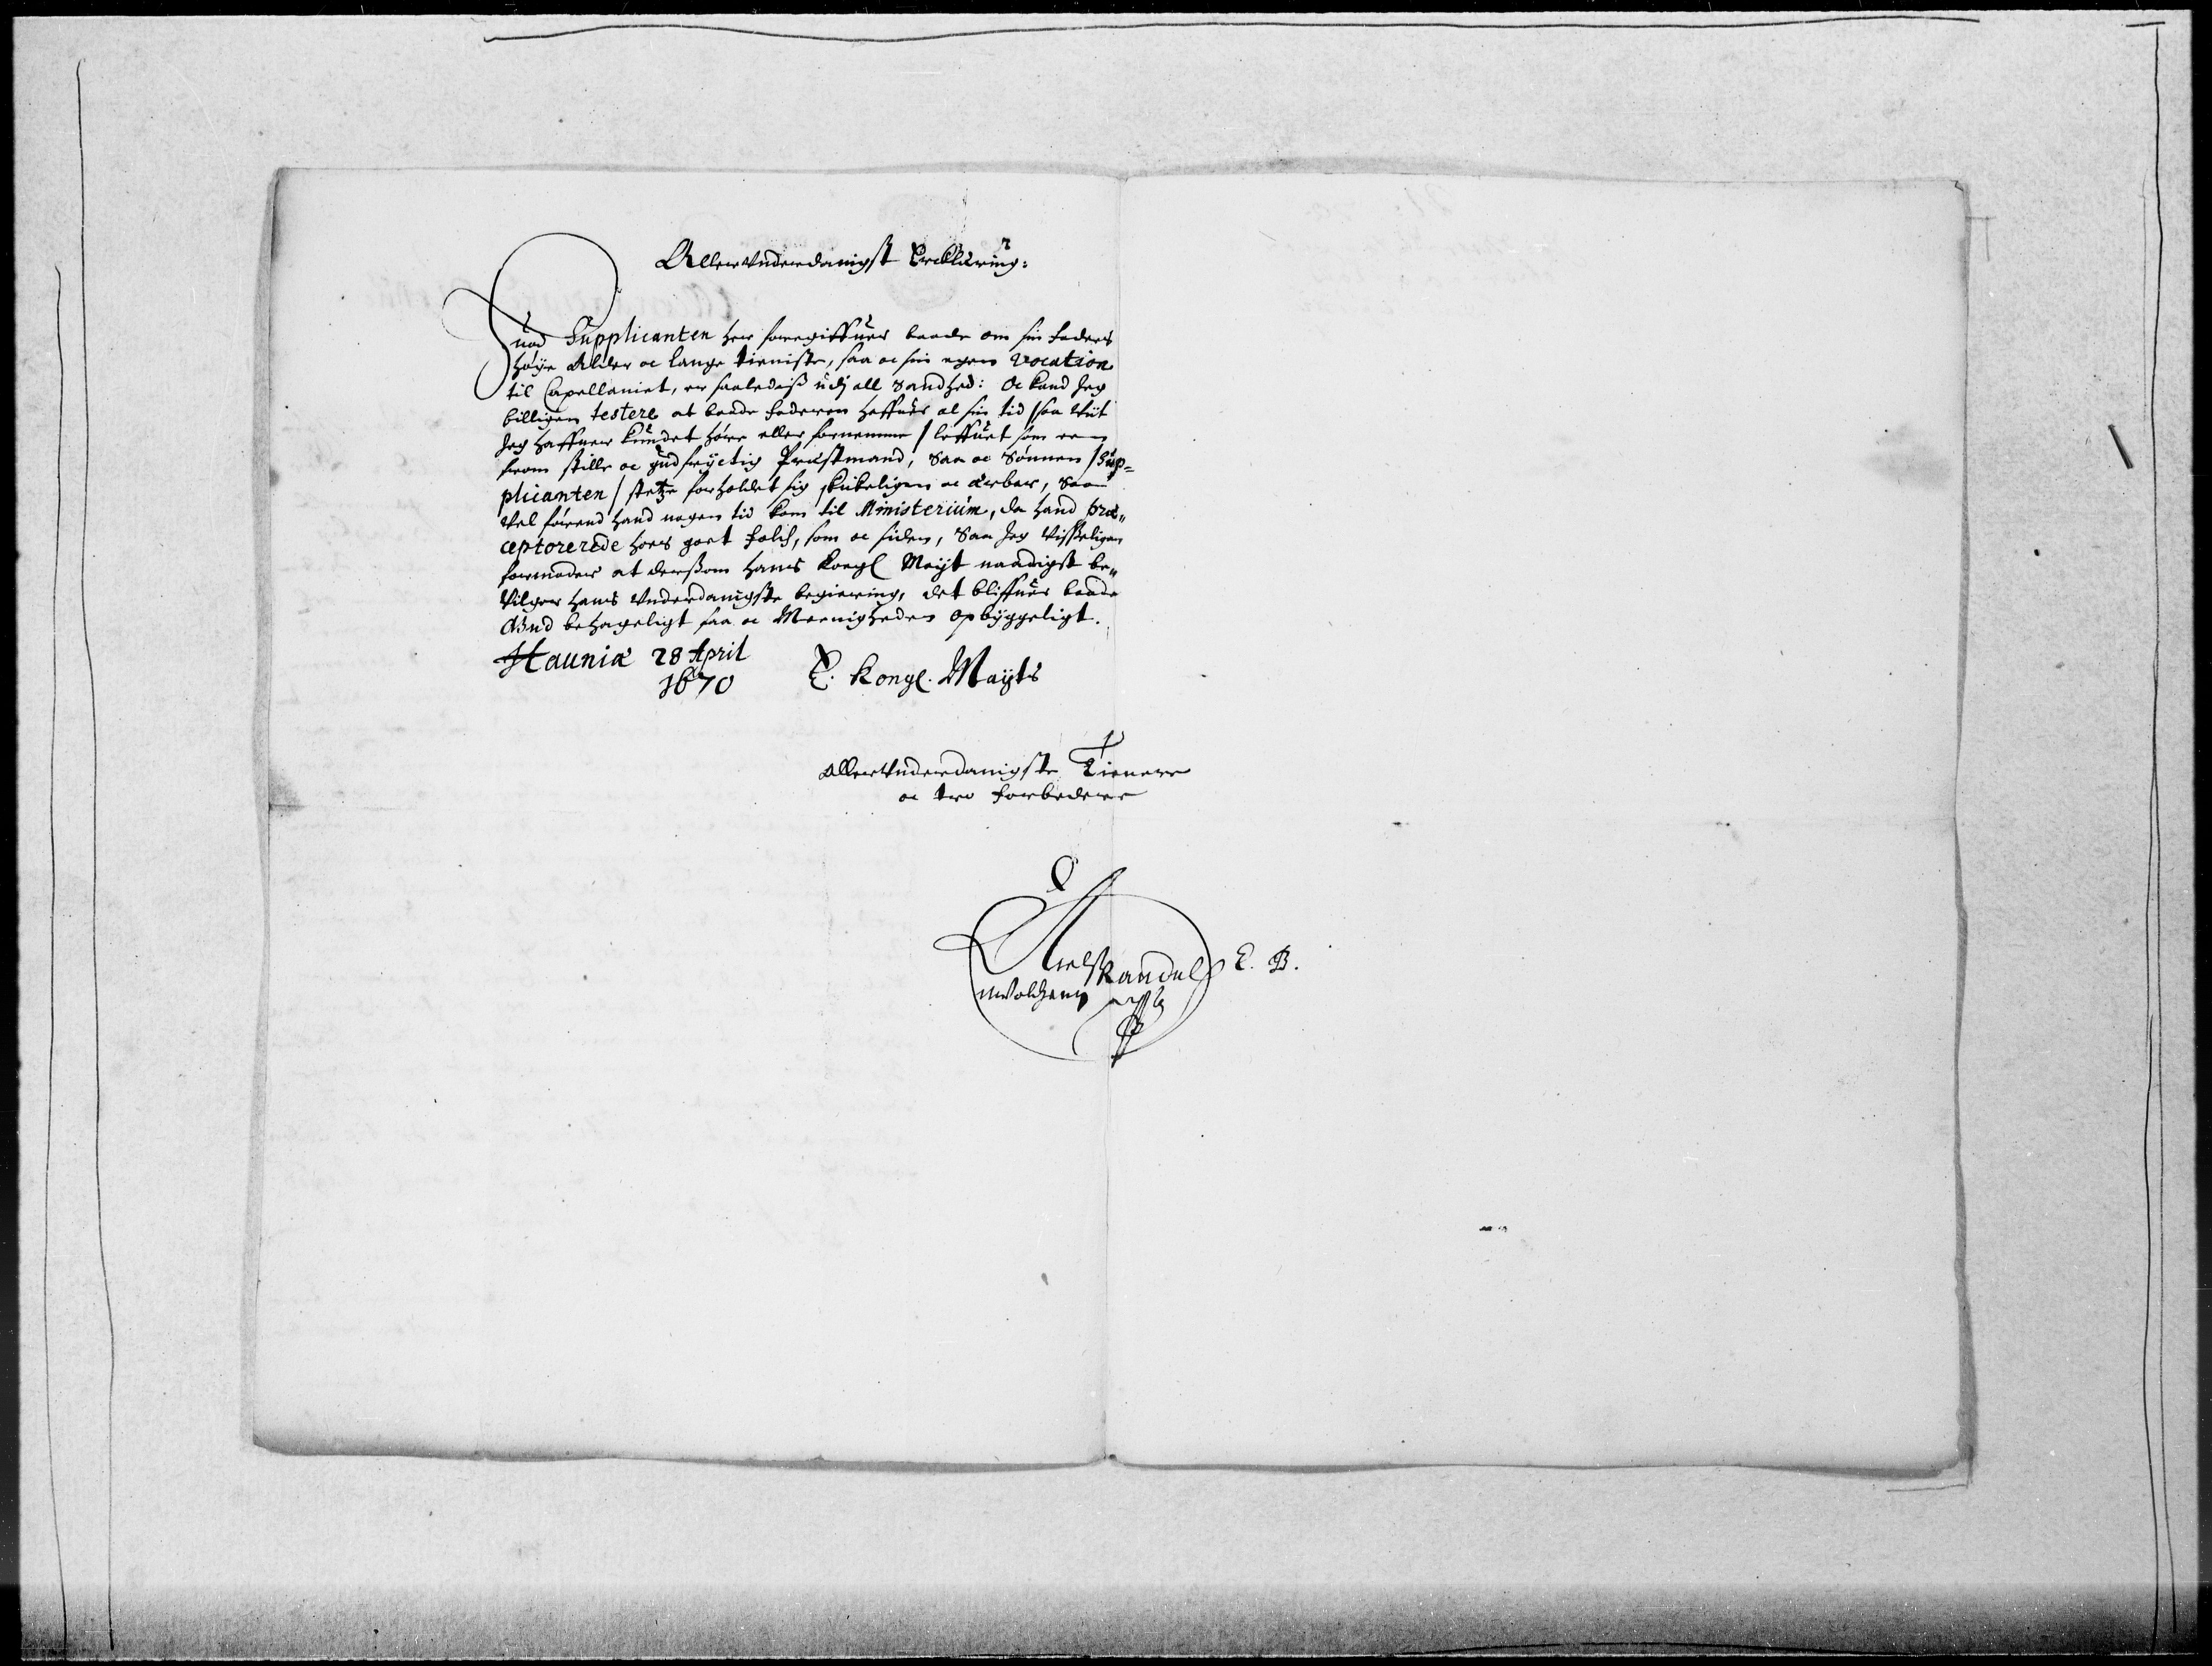 Allervnderdanigst Erklæring:
Huad Supplicanten her foregiffuer baade om sin faders
høye Alder oc lange tieniste, saa oc sin egen Vocation
til Capellaniet, er saaledeiß udj all Sandhed: Oc kand Jeg
billigen testere at baade faderen haffuer al sin tid /saa viit
Jeg haffuer kundet høre eller fornemme / leffuet som een
from stille oc gudfryctig Præstmand, Saa oc Sønnen /Sup=
plicanten / stetze forholdet sig skickeligen oc ærbar, Saa
vel førend hand nogen tid kom til Ministerium, da hand præ„
ceptorerede hoes goet folch, som oc siden, Saa Jeg visseligen
formoder at dersom hans Kongl Mayt naadigst be„
vilger hans vnderdanigste begiering, det bliffuer baade
Gud behageligt saa oc Meenigheden opbyggeligt.
Hauniæ 28 April
1670
E. Kongl. Mayts
Allervnderdanigste Tienere
oc tro forbedere
Niels Randulf E. B.